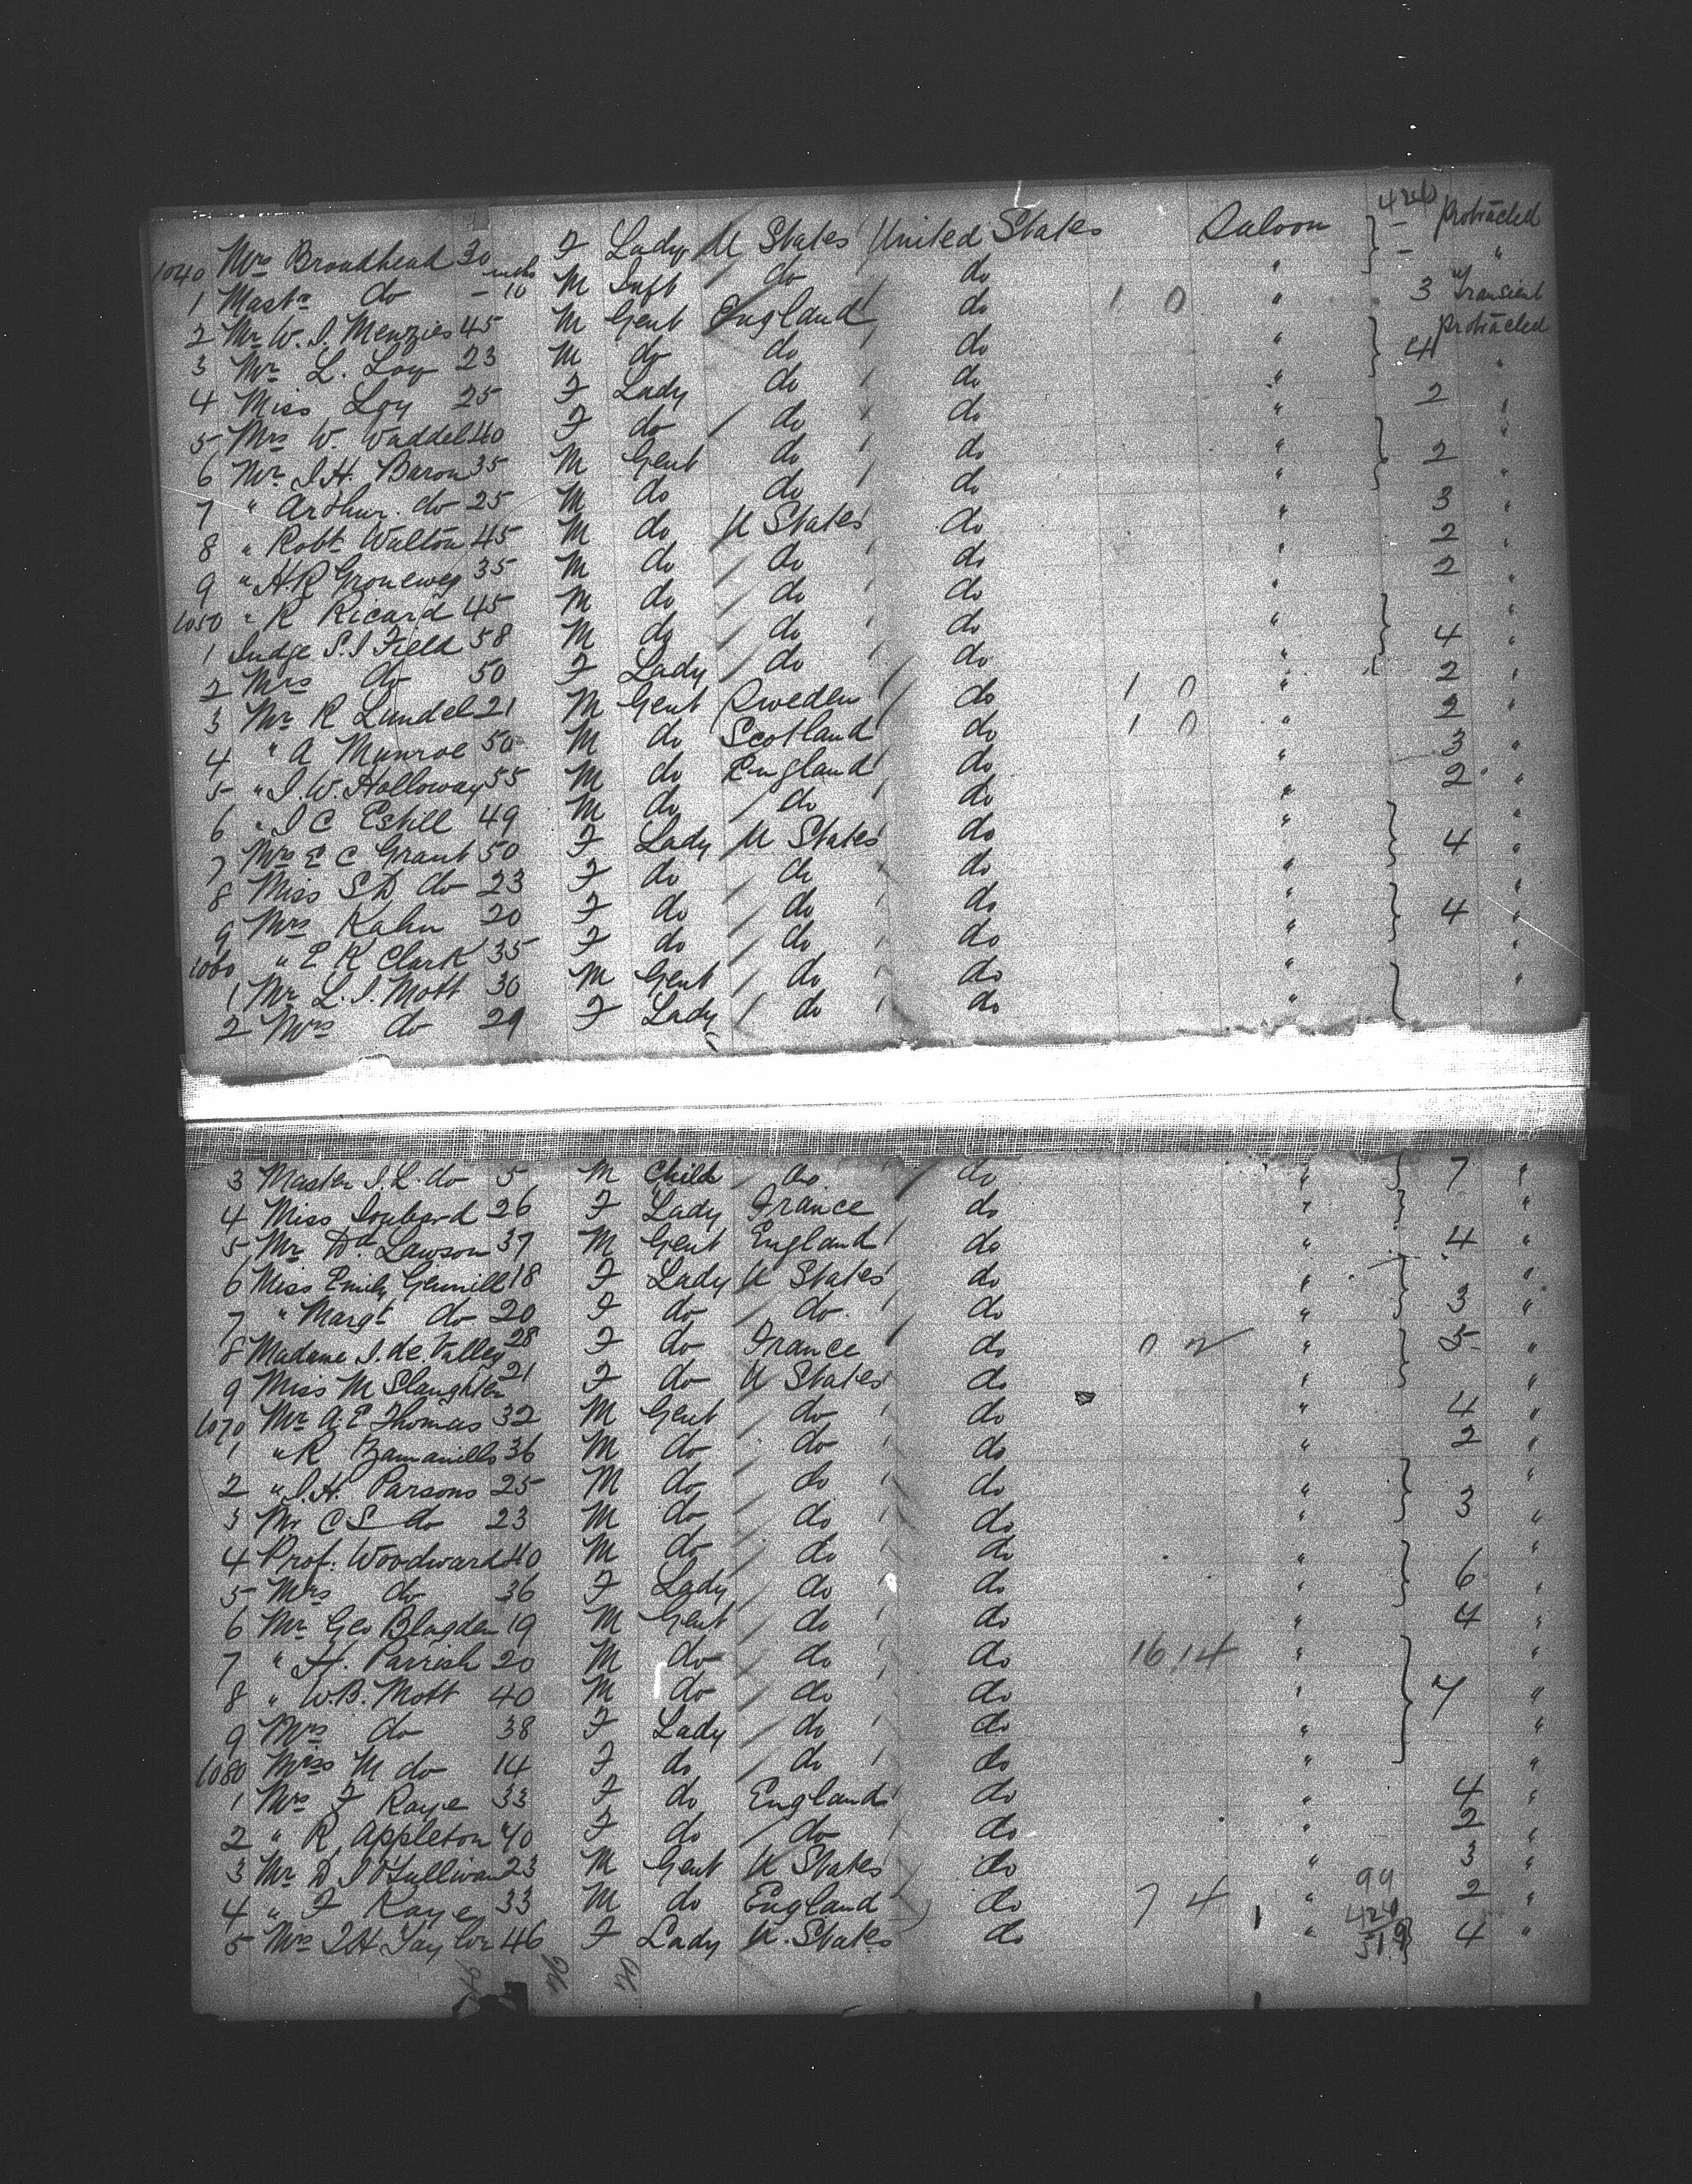 426
1040 Mrs Broadhead 30 F Lady U States United States Saloon - Protracted
1 Mastr do - 10 mths M Inft do do " - "
2 Mr W. J. Menzies 45 M Gent England do 1 0 " 3 Transient
3 Mr L. Loy 23 M do do do " Protracted
4 Miss Loy 25 F Lady do do " 4 "
5 Mrs W. Waddel 40 F do do do " 2 "
6 Mr J. H. Baron 35 M Gent do do " "
7 " Arthur do 25 M do do do " 2 "
8 " Robt Walton 45 M do U States do " 3 "
9 " H. R Groneweg 35 M do do do " 2 "
1050 " R Ricard 45 M do do do " 2 "
1 Judge S. J Field 58 M do do do " "
2 Mrs do 50 F Lady do do " 4 "
3 Mr R Lundel 21 M Gent Sweden do 1 0 " 2 "
4 " A Munroe 50 M do Scotland do 1 0 " 2 "
5 " J. W. Holloway 55 M do England do " 3 "
6 " J C Estill 49 M do do do " 2 "
7 Mrs E C Grant 50 F Lady U States do " "
8 Miss S D do 23 F do do do " 4 "
9 Mrs Kahn 20 F do do do " "
1060 " E K Clark 35 F do do do " 4 "
1 Mr L. J. Mott 30 M Gent do do " "
2 Mrs do 29 F Lady do do " "
3 Master J. L. do 5 M Child do do " 7 "
4 Miss 26 F Lady France do " "
5 Mr Dd Lawson 37 M Gent England do " 4 "
6 Miss Emily Gemmill 18 F Lady U States do " "
7 " Margt do 20 F do do do " 3 "
8 Madame J. de Valley 28 F do France do 0 2 " 5 "
9 Miss M Slaughter 21 F do U States do " "
1070 Mr A. E Thomas 32 M Gent do do " 4 "
1 " R Zamanillo 36 M do do do " 2 "
2 " J. H. Parsons 25 M do do do " "
3 Mr C S do 23 M do do do " 3 "
4 Prof. Woodward 40 M do do do " "
5 Mrs do 36 F Lady do do " 6 "
6 Mr Geo Blagden 19 M Gent do do " 4 "
7 " H. Parrish 20 M do do do 16 14 " "
8 " W. B. Mott 40 M do do do " 7 "
9 Mrs do 38 F Lady do do " "
1080 Miss M do 14 F do do do " "
1 Mrs F Raye 33 F do England do " 4 "
2 " R. Appleton 40 F do do do " 2 "
3 Mr D J O'Sullivan 23 M Gent U States do " 3 "
4 " F Raye 33 M do England do 7 4 " 99 2 "
5 Mrs J H Taylor 46 F Lady U. States do " 420 519 4 "